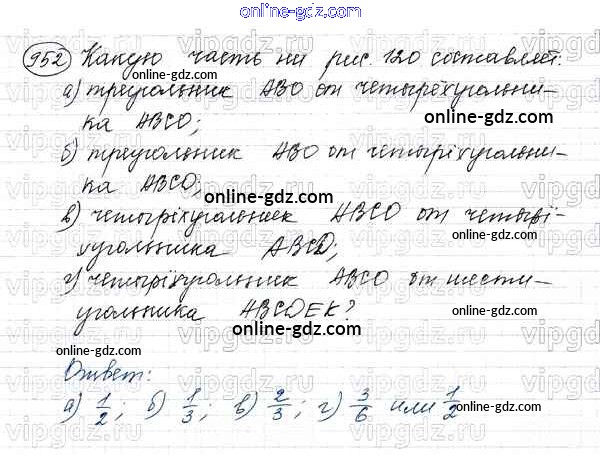 online-gdz.com
952 Какую часть ни рис. 120 составляет:
online-gdz.com
а) треугольник АВО от четырёхугольни-
ка АВСО;
б) треугольник АВО от четырёхугольни-
ка АВСО;
online-gdz.com
в) четырёхугольник АВСО от четырё-
хугольника АВСD;
online-gdz.com
г) четырёхугольник АВСО от шести-
угольника АВСDEK?
online-gdz.com
online-gdz.com
Ответ:
online-gdz.com
а) 1/2; б) 1/3; в) 2/3; г) 3/6 или 1/2
online-gdz.com